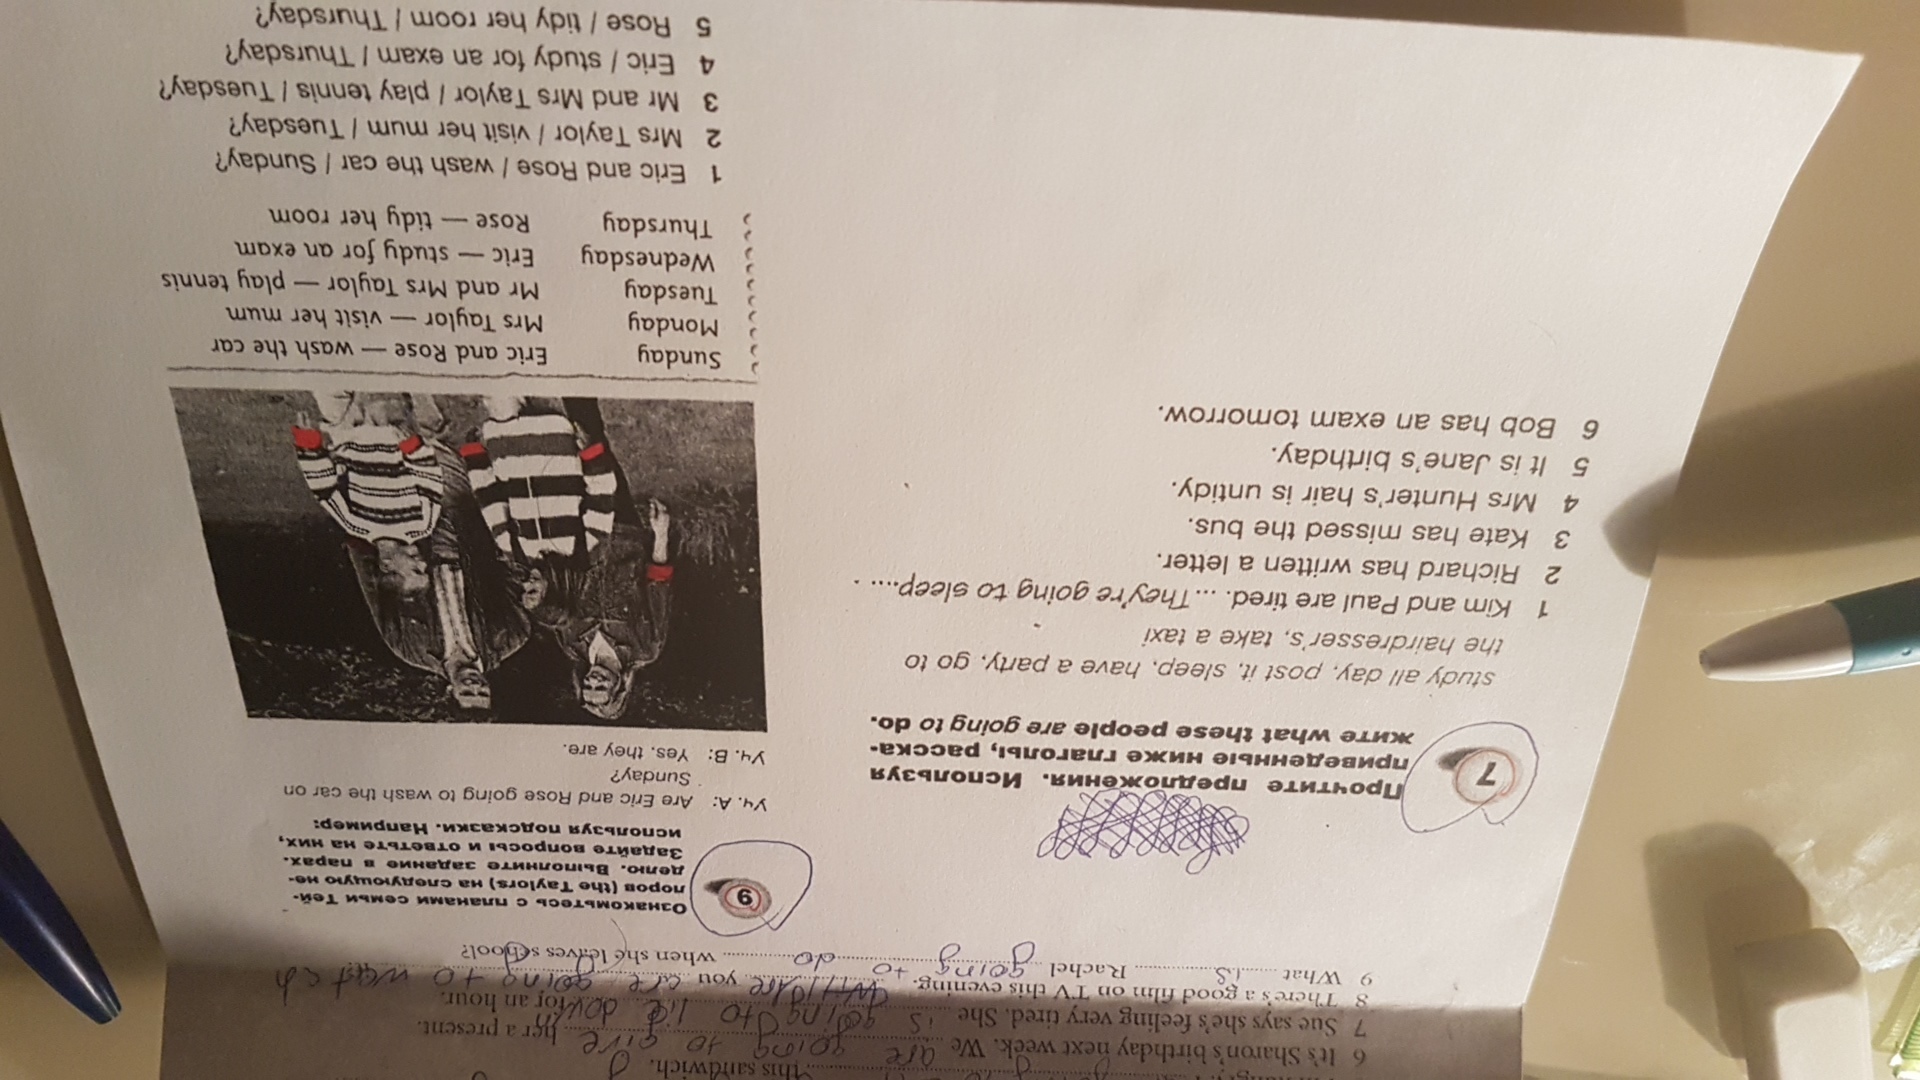 this sandwich.
6 It's Sharon's birthday next week. We are going to give her a present.
7 Sue says she's feeling very tired. She is going to lie down for an hour.
8 There's a good film on TV this evening. are you are going to watch
9 What is Rachel going to do when she leaves school?
7
Прочтите предложения. Используя
приведенные ниже глаголы, расска-
жите what these people are going to do.
study all day, post it, sleep, have a party, go to
the hairdresser's, take a taxi
1 Kim and Paul are tired. ... They're going to sleep.... .
2 Richard has written a letter.
3 Kate has missed the bus.
4 Mrs Hunter's hair is untidy.
5 It is Jane's birthday.
6 Bob has an exam tomorrow.
9
Ознакомьтесь с планами семьи Тей-
лоров (the Taylors) на следующую не-
делю. Выполните задание в парах.
Задайте вопросы и ответьте на них,
используя подсказки. Например:
Уч. A: Are Eric and Rose going to wash the car on
Sunday?
Уч. B: Yes, they are.
Sunday Eric and Rose — wash the car
Monday Mrs Taylor — visit her mum
Tuesday Mr and Mrs Taylor — play tennis
Wednesday Eric — study for an exam
Thursday Rose — tidy her room
1 Eric and Rose / wash the car / Sunday?
2 Mrs Taylor / visit her mum / Tuesday?
3 Mr and Mrs Taylor / play tennis / Tuesday?
4 Eric / study for an exam / Thursday?
5 Rose / tidy her room / Thursday?